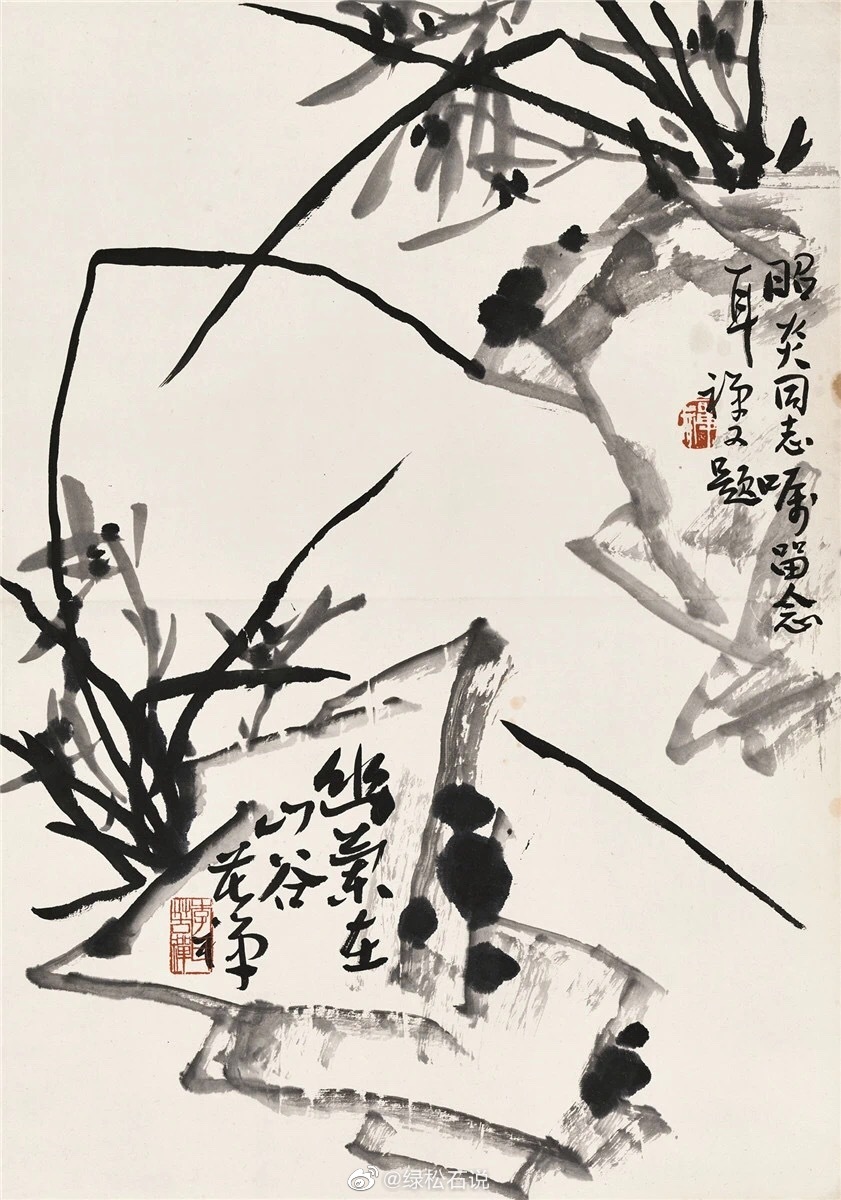 昭炎同志嘱留念
禅又题
幽蘭在
山谷
苦禅
@绿松石说